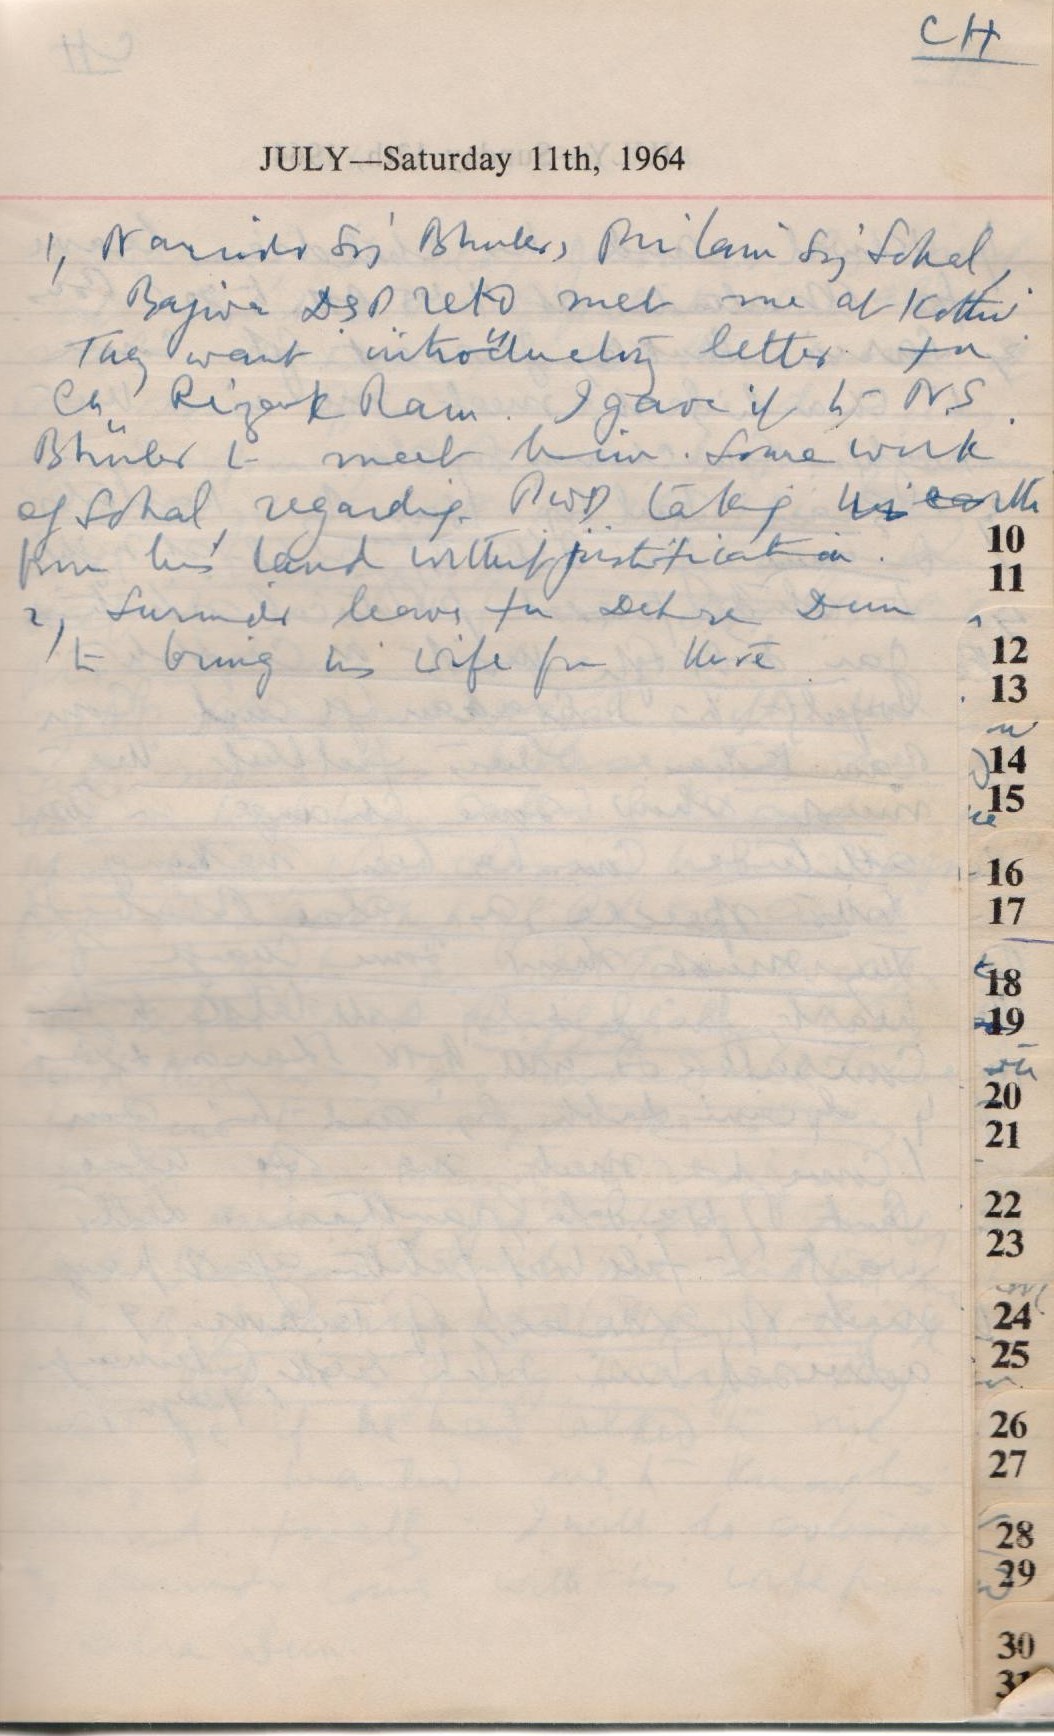 CH
JULY—Saturday 11th, 1964
1, Narinder Sing Bhuler, Sing Sohal,
Bajwa DSP retd met me at Kothi
They want introducting letter for
Ch. Rizak Ram. I gave it to N.S.
Bhuler to meet him. Some work
of Sohal, regarding PWD taking earth
from his land without justification.
2, Surinder leaves for Dehra Dun
to bring his wife from there
10
11
12
13
14
15
16
17
18
19
20
21
22
23
24
25
26
27
28
29
30
31